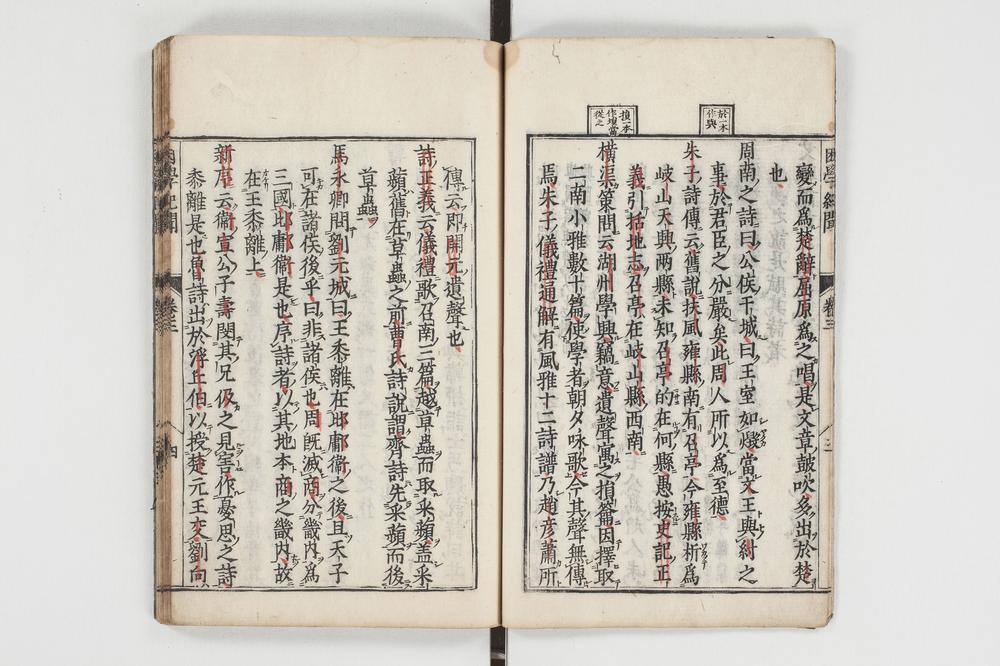 困學紀聞 卷三
於一本作與
損一本作壎當從之
變而爲楚辭屈原爲之唱是文章鼓吹多出於楚
也
周南之詩曰公侯干城曰王室如燬當文王與紂之
事於君臣之分嚴矣此周人所以爲至德
朱子詩傳云舊說扶風雍縣南有召亭今雍縣析爲
岐山天興兩縣未知召亭的在何縣愚按史記正
義引括地志召亭在岐山縣西南
橫渠策問云湖州學興竊意遺聲寓之損篇因擇取
二南小雅數十篇使學者朝夕咏歌今其聲無傳
焉朱子儀禮通解有風雅十二詩譜乃趙彥蕭所
傳云即開元遺聲也
詩正義云儀禮歌召南三篇越草蟲而取采蘋蓋采
蘋舊在草蟲之前曹氏詩說謂齊詩先采蘋而後
草蟲
馬永卿問劉元城曰王黍離在邶鄘衛之後且天子
可在諸侯後乎曰非諸侯也周既滅商分畿內爲
三國邶鄘衛是也序詩者以其地本商之畿內故
在王黍離上
新序云衛宣公子壽閔其兄伋之見害作憂思之詩
黍離是也魯詩出於浮丘伯以授楚元王交劉向
卷三 四